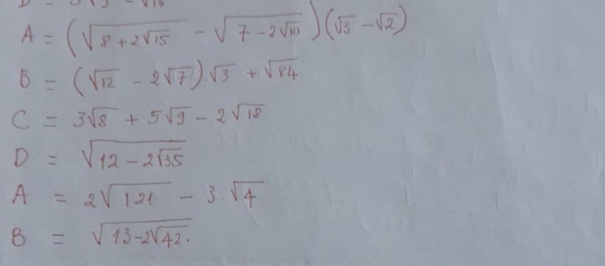 A = (√(8+2√15) - √(7-2√10))(√3 - √2)
B = (√12 - 2√7).√3 + √84
C = 3√8 + 5√9 - 2√18
D = √(12-2√35)
A = 2√121 - 3.√4
B = √(13-2√42).